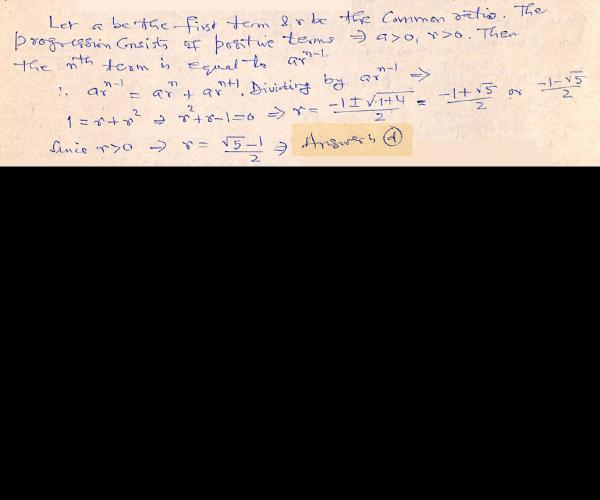 Let a be the first term & r be the Common ratio. The
progression Consists of positive terms ⇒ a>0, r>0. Then
the nth term is equal to ar^(n-1).
∴ ar^(n-1) = ar^n + ar^(n+1). Dividing by ar^(n-1) ⇒
1 = r + r² ⇒ r² + r - 1 = 0 ⇒ r = (-1 ± √(1+4))/2 = (-1+√5)/2 or (-1-√5)/2
Since r>0 ⇒ r = (√5-1)/2 ⇒ Answer is (d)